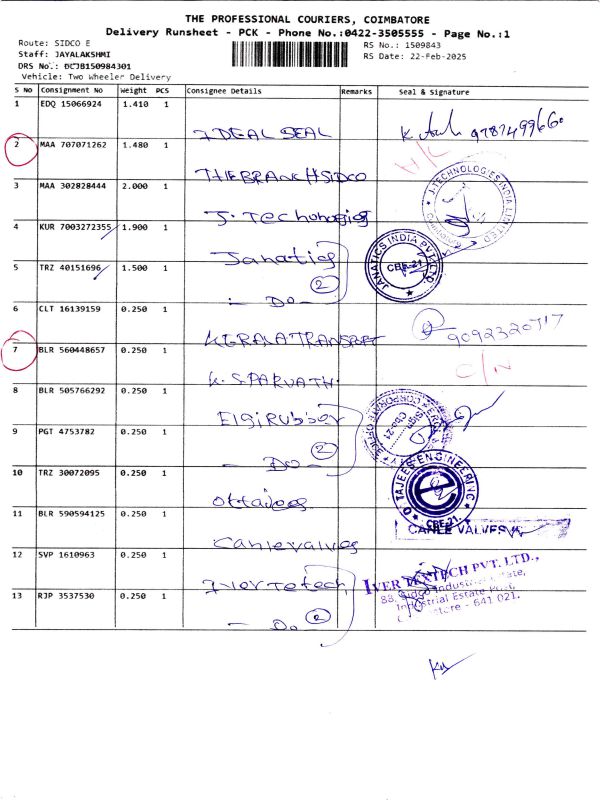 THE PROFESSIONAL COURIERS, COIMBATORE
Delivery Runsheet - PCK - Phone No.:0422-3505555 - Page No.:1
Route: SIDCO E
RS No.: 1509843
Staff: JAYALAKSHMI
RS Date: 22-Feb-2025
DRS No.: BCJB150984301
Vehicle: Two Wheeler Delivery
S No Consignment No Weight PCS Consignee Details Remarks Seal & Signature
1 EDQ 15066924 1.410 1
IDEAL SEAL
2 MAA 707071262 1.480 1
THEBRANCHSIDCO
3 MAA 302828444 2.000 1
J. Technologies
J-TECHNOLOGIES INDIA LIMITED
4 KUR 7003272355 1.900 1
Janatics
JANATICS INDIA PVT LTD
CBE-21
5 TRZ 40151696 1.500 1
2
- Do -
6 CLT 16139159 0.250 1
KERALA TRANSPORT
7 BLR 560448657 0.250 1
C/N
K. S. PARVATHI
8 BLR 505766292 0.250 1
Elgi Rubber
9 PGT 4753782 0.250 1
2
- Do -
10 TRZ 30072095 0.250 1
Ottajees
OTTAJEES ENGINEERING
CBE-21.
11 BLR 590594125 0.250 1
Canlevalves
CANLE VALVES
12 SVP 1610963 0.250 1
Ivertetech
IVER TEXTECH PVT. LTD.,
88, Sidco Industrial Estate,
Industrial Estate Post,
- 641 021.
13 RJP 3537530 0.250 1
2
- Do -